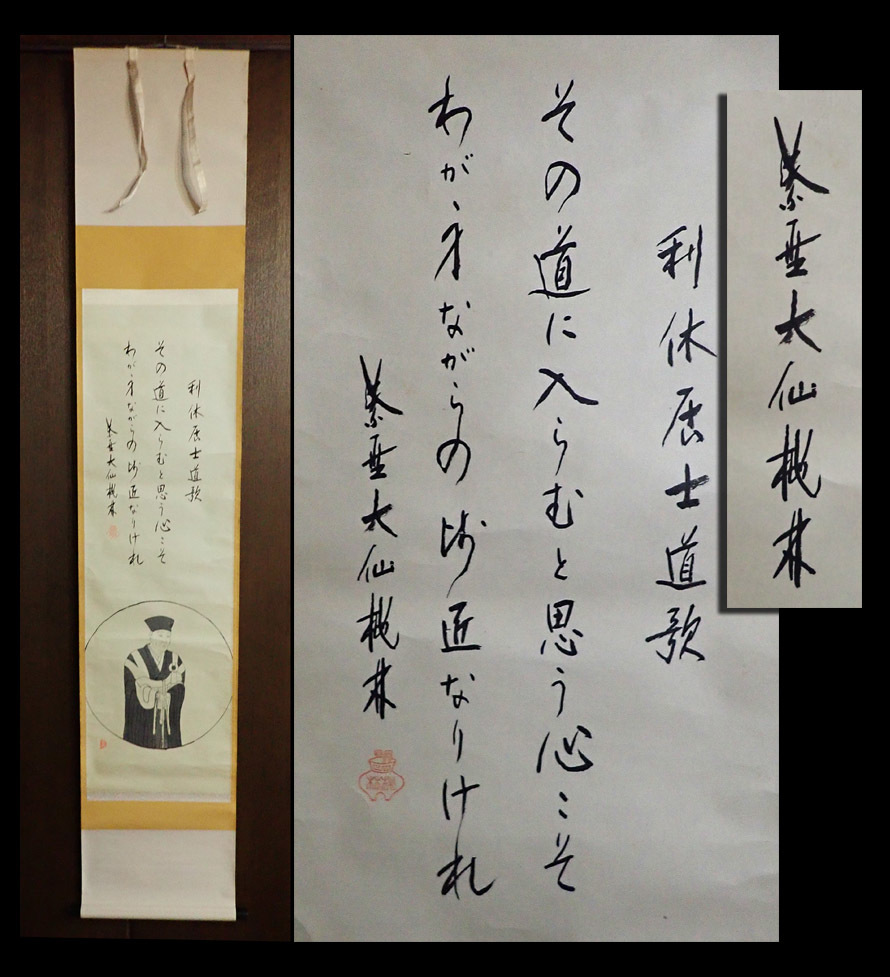 利休居士道歌
その道に入らむと思う心こそ
わが身ながらの師匠なりけれ
紫埜大仙
利休居士道歌
その道に入らむと思う心こそ
わが身ながらの師匠なりけれ
紫埜大仙
紫埜大仙